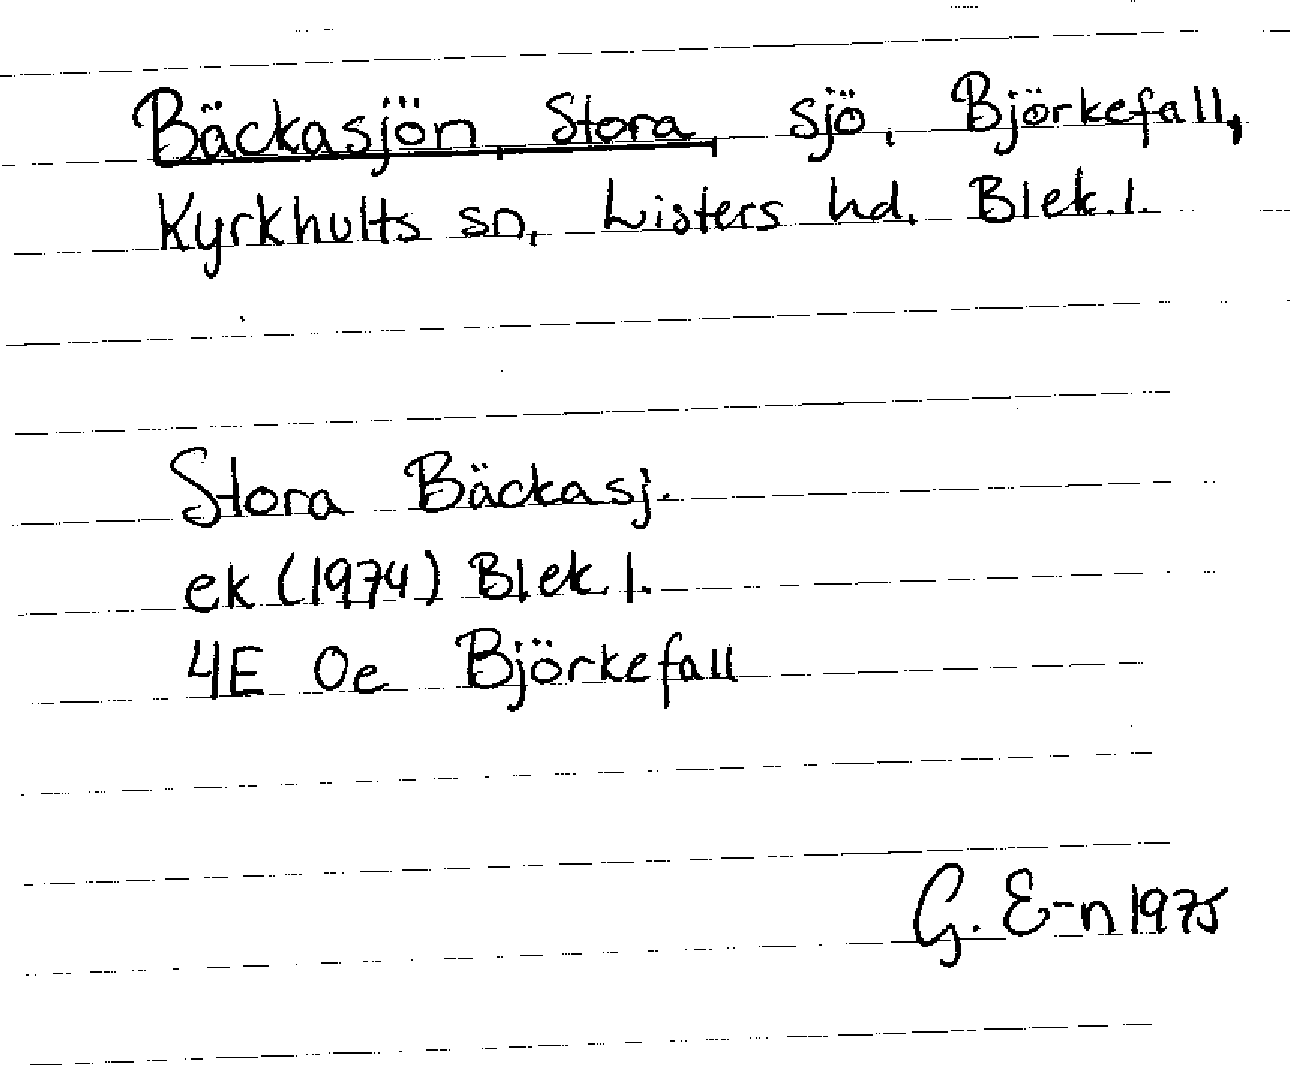 Bäckasjön, Stora, sjö, Björkefall,
Kyrkhults sn, Listers hd. Blek.l.
Stora Bäckasj.
ek (1974) Blek.l.
4E 0e Björkefall
G. E-n 1975